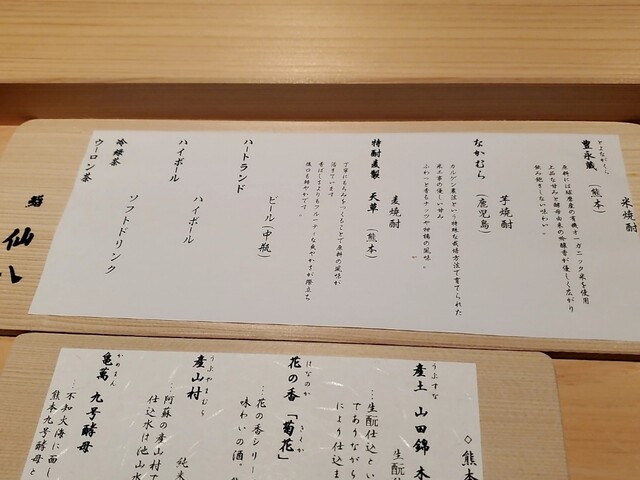 米焼酎
とよながくら
豊永蔵
(熊本)
原料には球磨産の有機オーガニック米を使用
上品な甘みと酵母由来の吟醸香が優しく広がり
飲み飽きしない味わい。
芋焼酎
なかむら
(鹿児島)
カルゲン農法という特殊な栽培方法で育てられた
米工事の優しい甘み
ふわっと香るナッツや柑橘の風味。
麦焼酎
特酎麦製 天草
(熊本)
丁寧にもろみをつくることで原料の風味が
活きています
香ばしさよりもフルーティな爽やかさが際立ち
後口も軽やかです。
ビール(中瓶)
ハートランド
ハイボール
ハイボール
ソフトドリンク
冷緑茶
ウーロン茶
鮨 仙八
◇熊本
うぶすな
産土 山田錦
木
生酛仕
…生酛仕込とい
でありながら
により仕込ま
はなのか
花の香「菊花」
きくか
…花の香シリー
味わいの酒。
うぶやまむら
産山村
純米
…阿蘇の産山村で
仕込水は池山水
かめまん
亀萬 九号酵母
…不知火海に面し
熊本九号酵母と